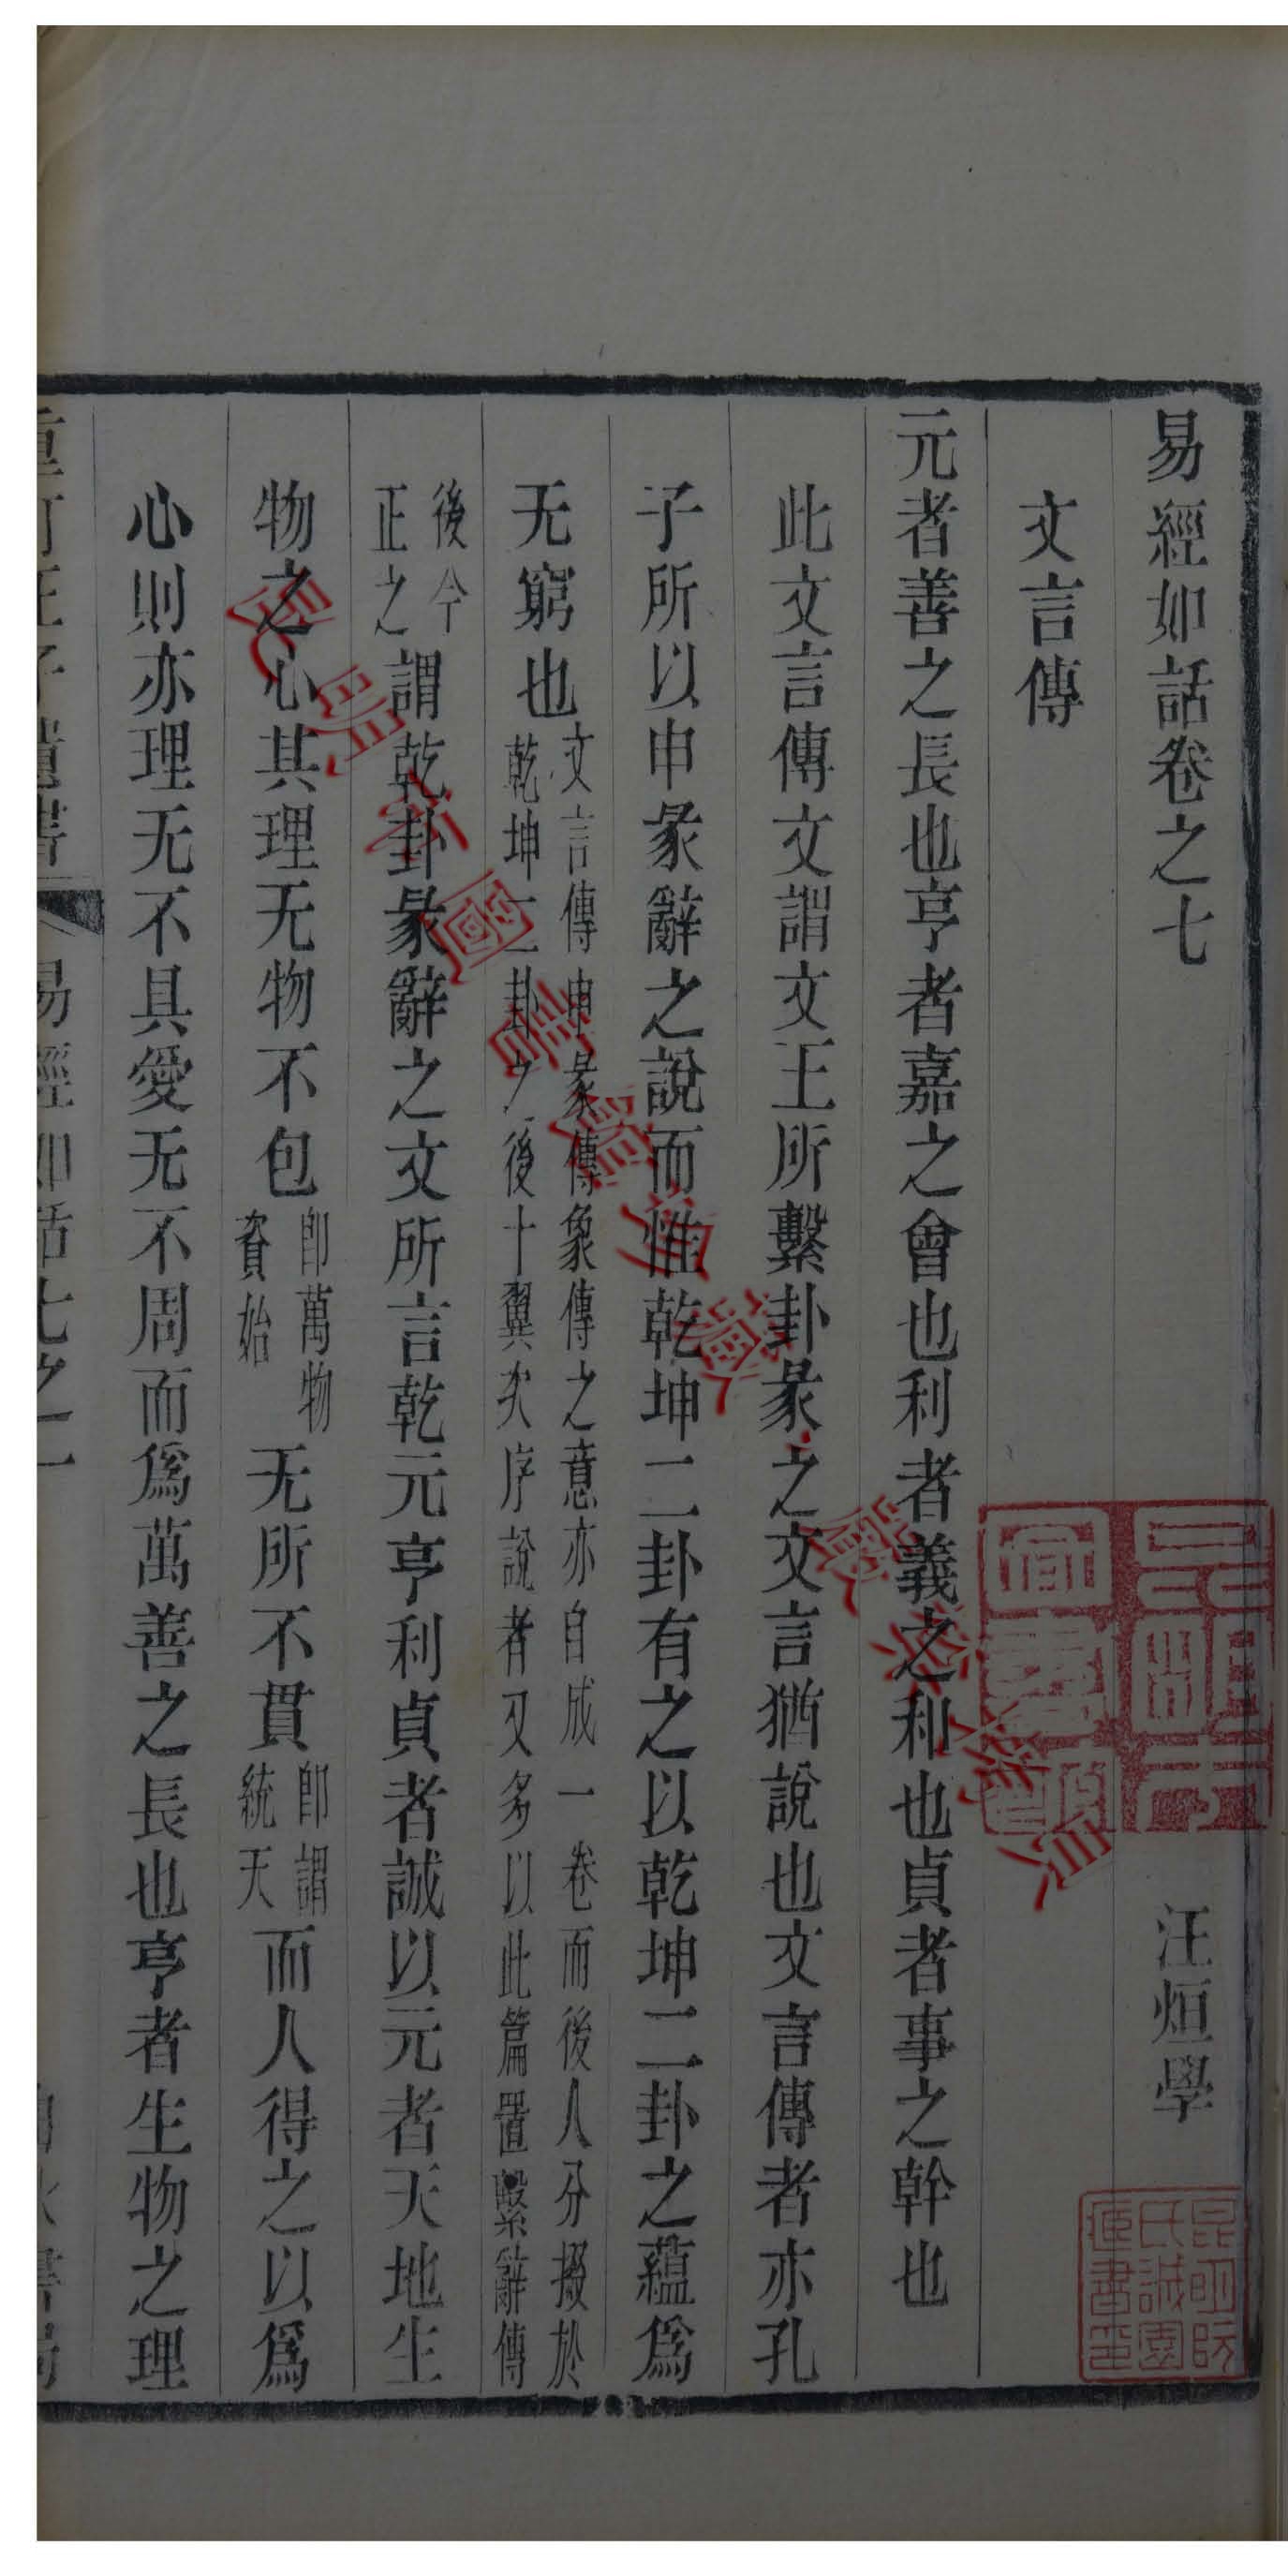 易經如話卷之七
汪烜學
文言傳
元者善之長也亨者嘉之會也利者義之和也貞者事之幹也
此文言傳文謂文王所繫卦彖之文言猶說也文言傳者亦孔
子所以申彖辭之說而惟乾坤二卦有之以乾坤二卦之蘊爲
无窮也
文言傳申彖傳象傳之意亦自成一卷而後人分掇於
乾坤二卦之後十翼次序說者又多以此篇置繫辭傳
後今
正之
謂乾卦彖辭之文所言乾元亨利貞者誠以元者天地生
物之心其理无物不包
卽萬物
資始
无所不貫
卽謂
統天
而人得之以爲
心則亦理无不具愛无不周而爲萬善之長也亨者生物之理
易經如話七之一
昆明市圖書館珍藏
昆明阮氏誠園匭書印